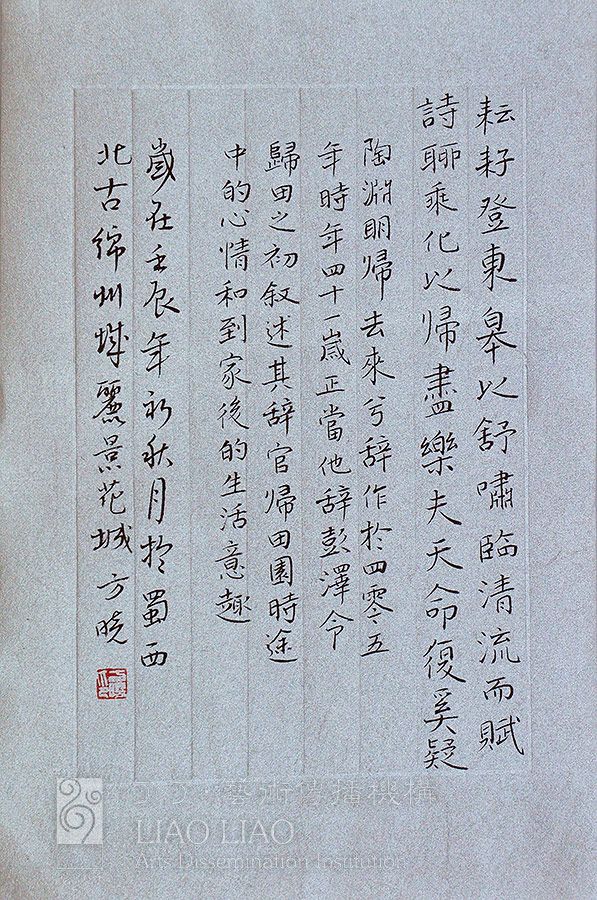 耘耔登東皋以舒嘯臨清流而賦
詩聊乘化以歸盡樂夫天命復奚疑
陶淵明歸去來兮辭作於四零五
年時年四十一歲正當他辞彭澤令
歸田之初叙述其辞官歸田園時途
中的心情和到家後的生活意趣
歲在壬辰年初秋月於蜀西
北古綿州城麗景花城方曉
了了·藝術傳播機構
LIAO LIAO
Arts Dissemination Institution